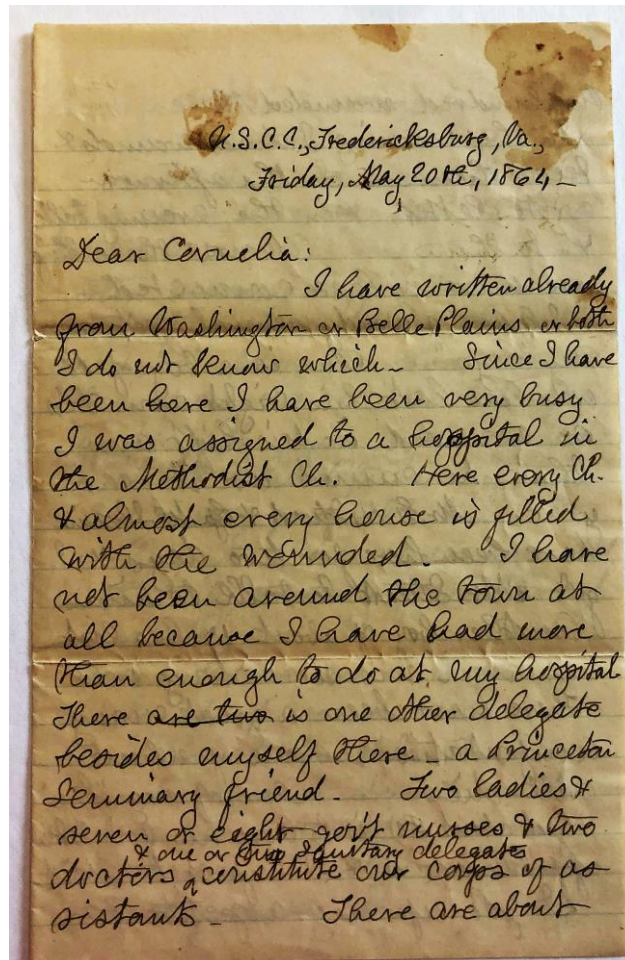 U.S.C.C., Fredericksburg, Va.,
Friday, May 20th, 1864 –
Dear Cornelia:
I have written already
from Washington or Belle Plains or both
I do not know which – Since I have
been here I have been very busy
I was assigned to a hospital in
the Methodist Ch. Here every Ch.
& almost every house is filled
with the wounded. I have
not been around the town at
all because I have had more
than enough to do at my hospital
There are two is one other delegate
besides myself there – a Princeton
Seminary friend – Two ladies &
seven or eight gov't nurses & two
& one or two Sanitary delegates
doctors ^ constitute our corps of as
sistants – There are about